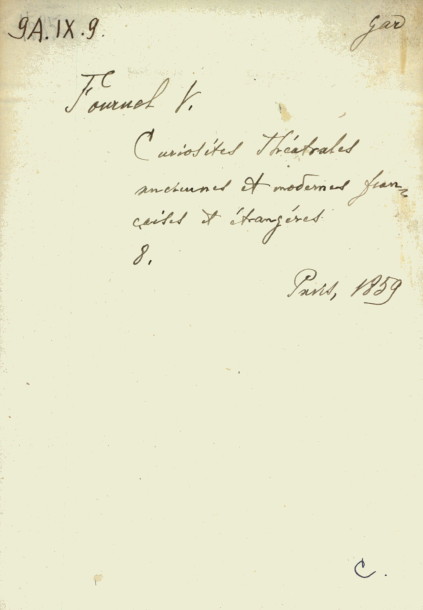 9A.IX.9.
gar
Fournel V.
Curiosités théâtrales
anciennes et modernes fran=
çaises et étrangéres
8.
Paris, 1859
C.